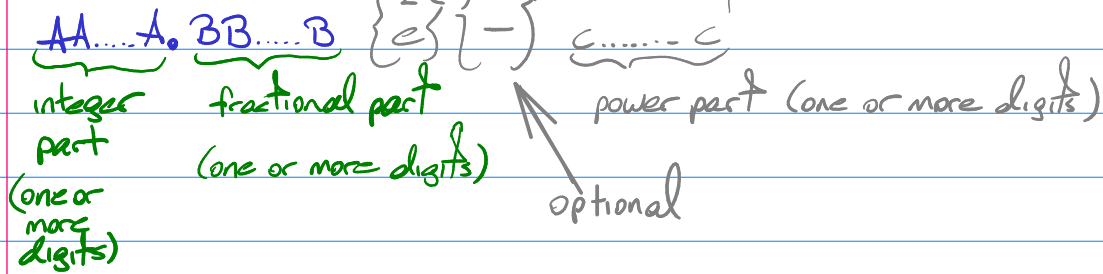 AA.....A. BB.....B {e} {-} c.......c
integer part (one or more digits)
fractional part (one or more digits)
power part (one or more digits)
optional